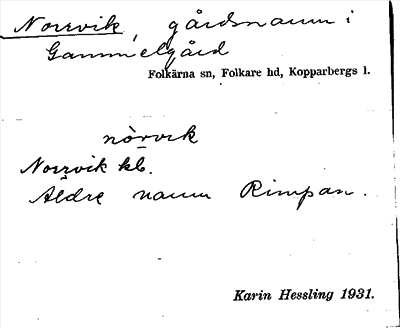 Norrvik, gårdsnamn i
Gammelgård
Folkärna sn, Folkare hd, Kopparbergs l.
nòrvɩk
Norrvik kb.
Äldre namn Rimpan.
Karin Hessling 1931.